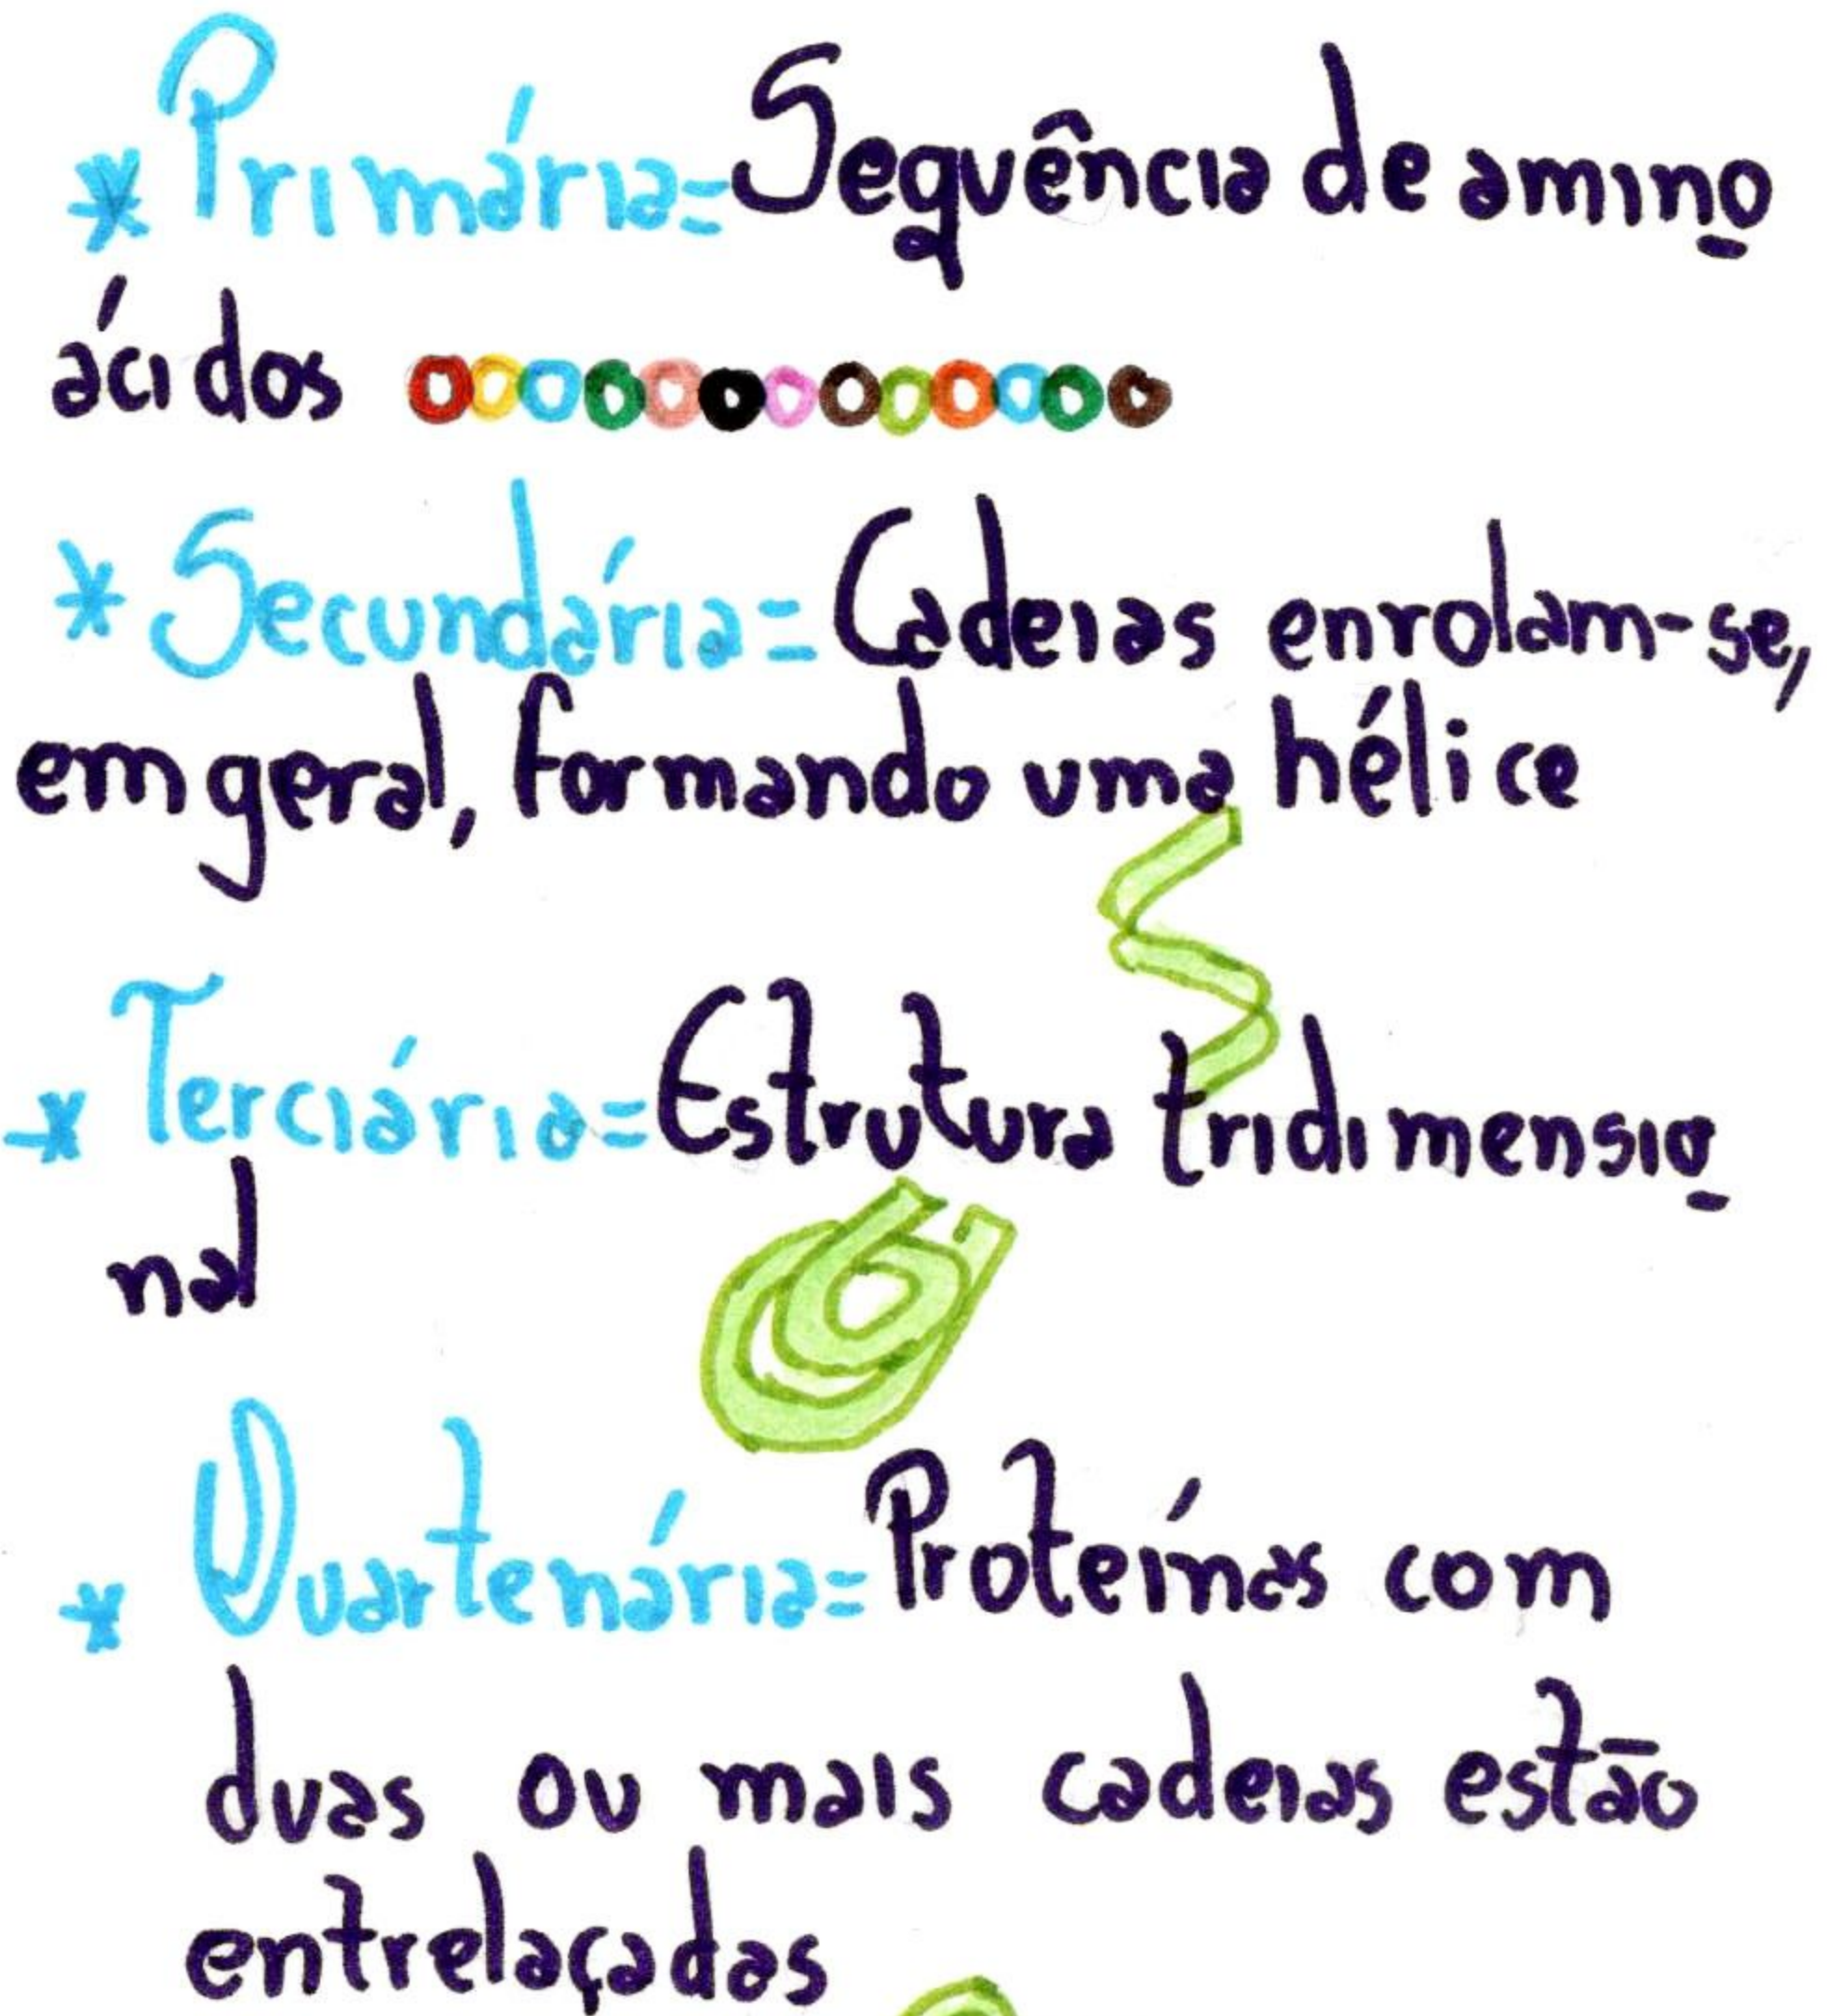 * Primária= Sequência de amino
ácidos
* Secundária= Cadeias enrolam-se,
em geral, formando uma hélice
* Terciária= Estrutura tridimensio
nal
* Quartenária= Proteínas com
duas ou mais cadeias estão
entrelaçadas